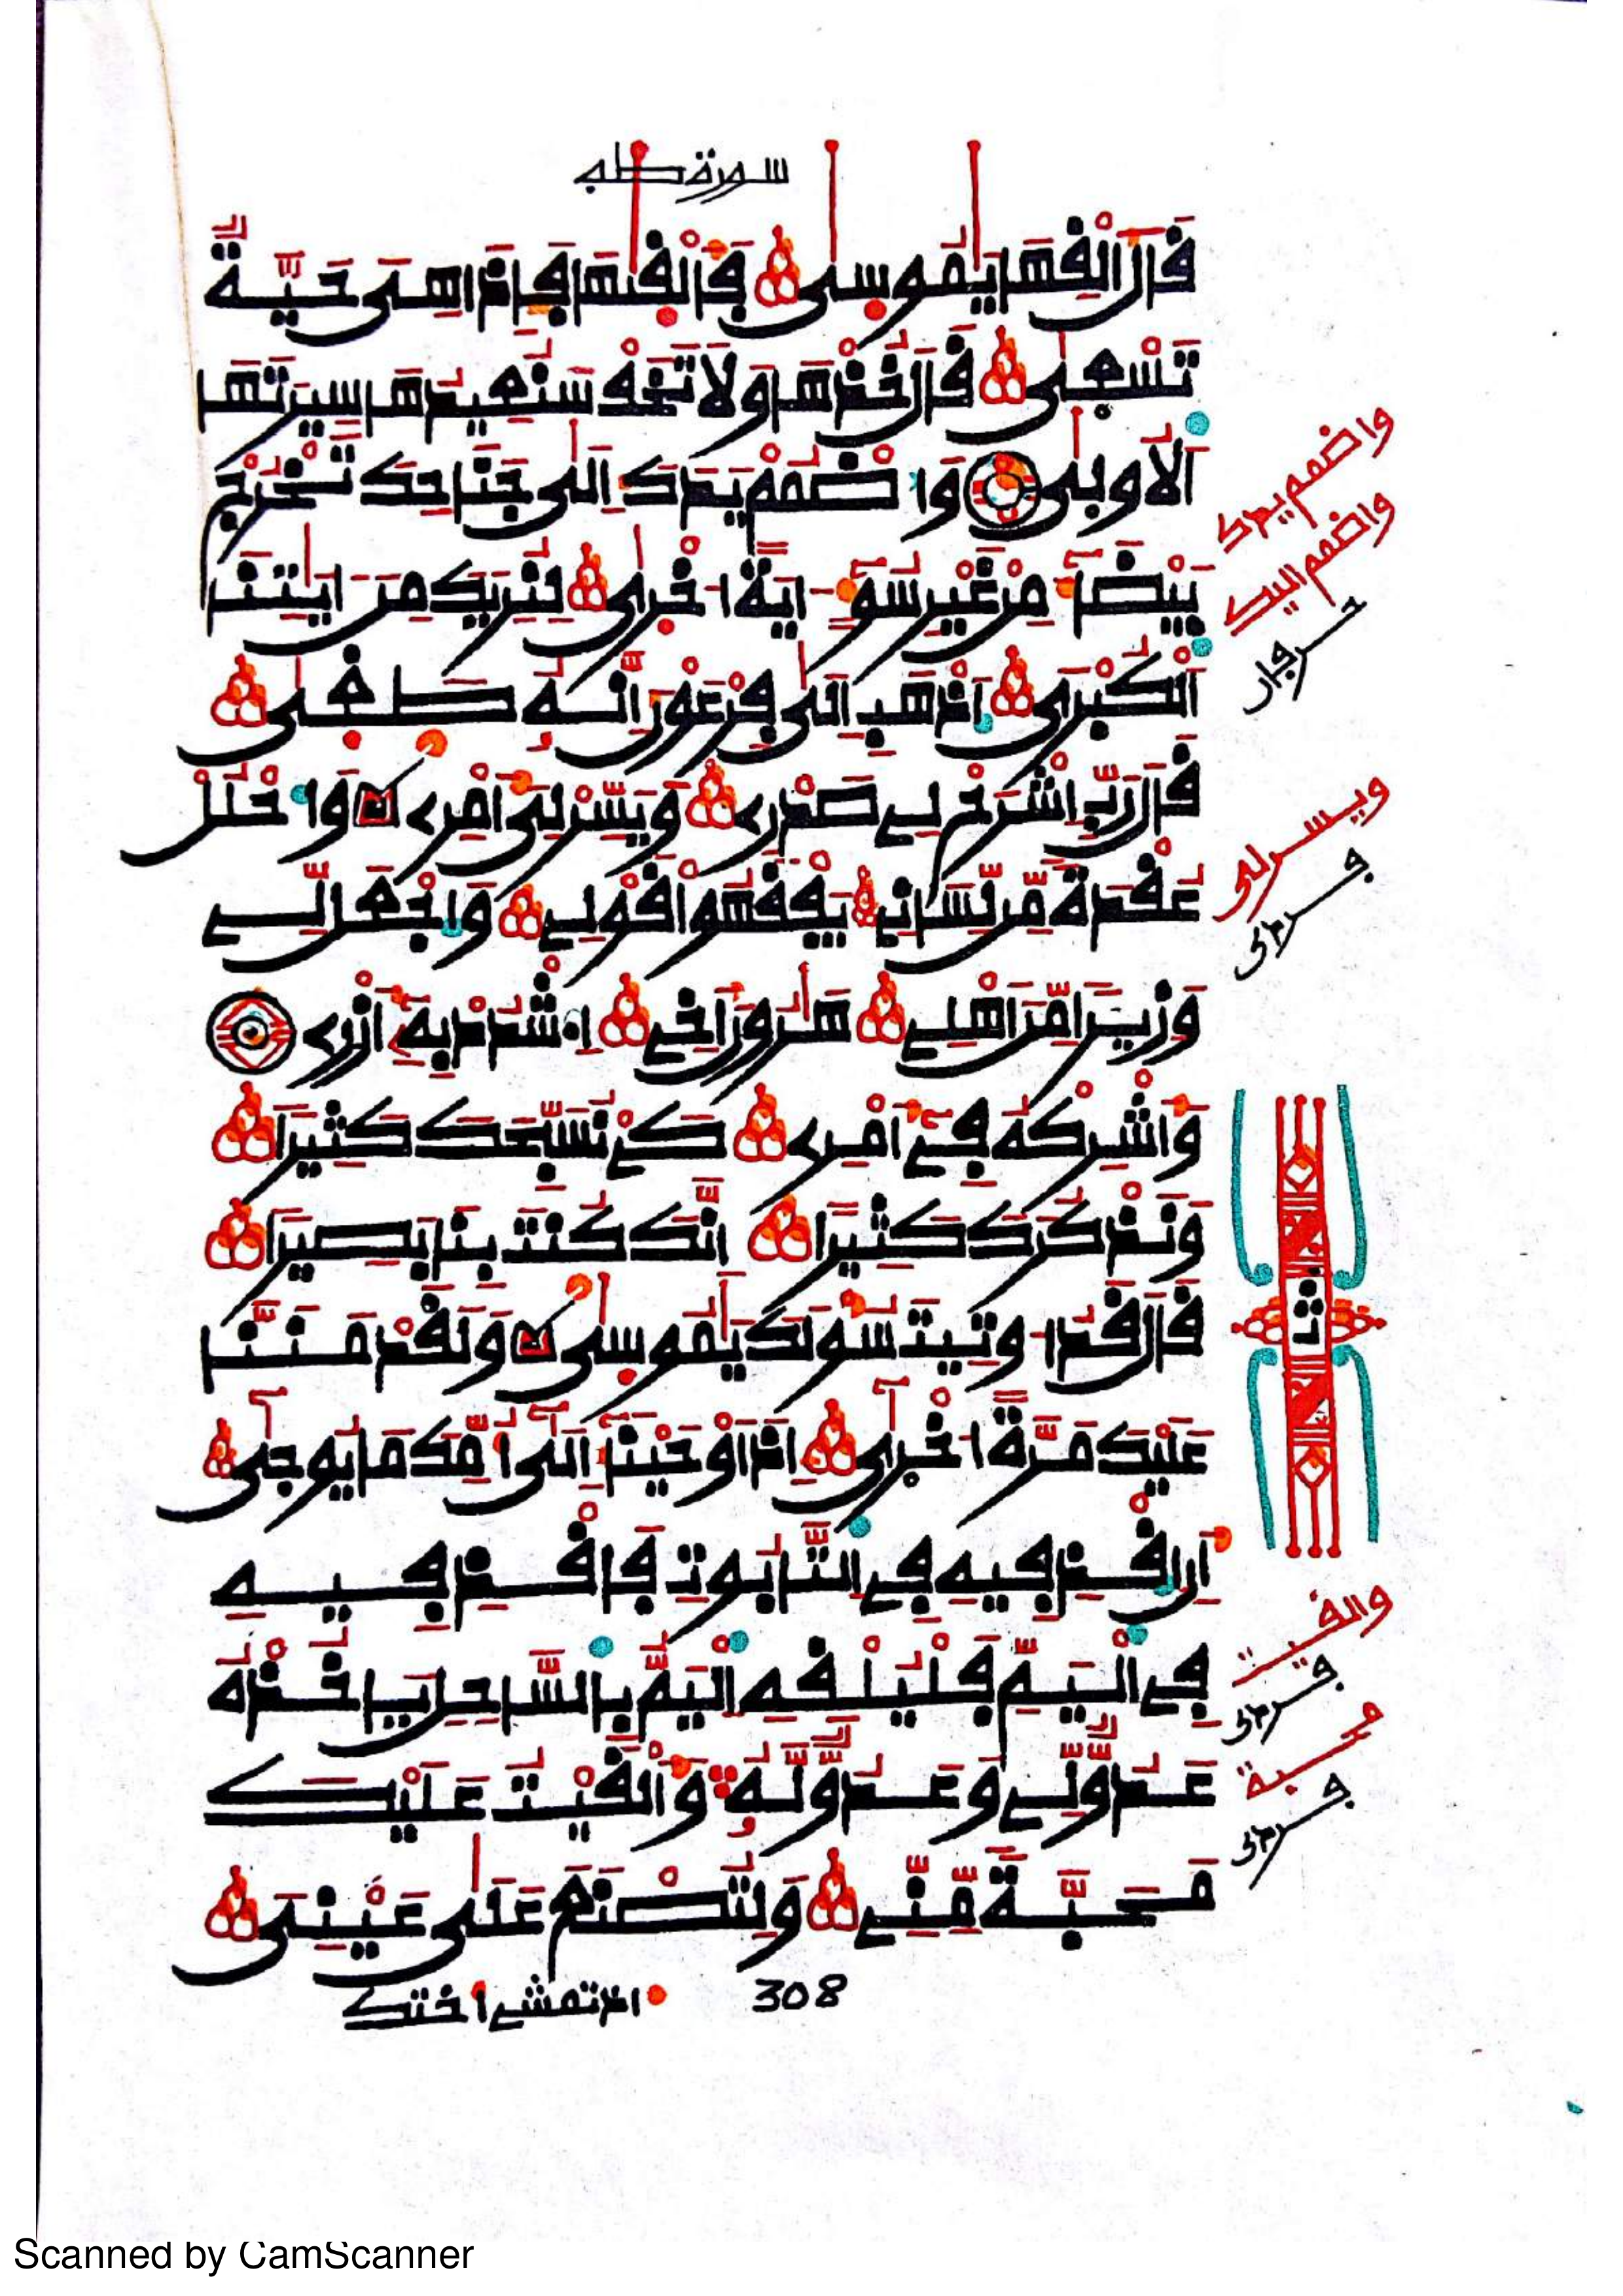 سورة طه
قَالَ أَلْقِهَا يَٰمُوسَىٰ فَأَلْقَىٰهَا فَإِذَا هِيَ حَيَّةٌ
تَسْعَىٰ قَالَ خُذْهَا وَلَا تَخَفْ سَنُعِيدُهَا سِيرَتَهَا
ٱلْأُولَىٰ وَٱضْمُمْ يَدَكَ إِلَىٰ جَنَاحِكَ تَخْرُجْ
بَيْضَآءَ مِنْ غَيْرِ سُوٓءٍ ءَايَةً أُخْرَىٰ لِنُرِيَكَ مِنْ ءَايَٰتِنَا
ٱلْكُبْرَى ٱذْهَبْ إِلَىٰ فِرْعَوْنَ إِنَّهُۥ طَغَىٰ
قَالَ رَبِّ ٱشْرَحْ لِي صَدْرِي وَيَسِّرْ لِيَ أَمْرِي وَٱحْلُلْ
عُقْدَةً مِّن لِّسَانِي يَفْقَهُوا قَوْلِي وَٱجْعَل لِّي
وَزِيرًا مِّنْ أَهْلِي هَٰرُونَ أَخِي ٱشْدُدْ بِهِۦٓ أَزْرِي
وَأَشْرِكْهُ فِيٓ أَمْرِي كَيْ نُسَبِّحَكَ كَثِيرًا
وَنَذْكُرَكَ كَثِيرًا إِنَّكَ كُنتَ بِنَا بَصِيرًا
قَالَ قَدْ أُوتِيتَ سُؤْلَكَ يَٰمُوسَىٰ وَلَقَدْ مَنَنَّا
عَلَيْكَ مَرَّةً أُخْرَىٰٓ إِذْ أَوْحَيْنَآ إِلَىٰٓ أُمِّكَ مَا يُوحَىٰٓ
أَنِ ٱقْذِفِيهِ فِي ٱلتَّابُوتِ فَٱقْذِفِيهِ
فِي ٱلْيَمِّ فَلْيُلْقِهِ ٱلْيَمُّ بِٱلسَّاحِلِ يَأْخُذْهُ
عَدُوٌّ لِّي وَعَدُوٌّ لَّهُۥ وَأَلْقَيْتُ عَلَيْكَ
مَحَبَّةً مِّنِّي وَلِتُصْنَعَ عَلَىٰ عَيْنِيَ
308
اذ تمشي أختك
واضمم يدك
واضمم اليك
ويسر لى
ثمن
والقيت
محبة
Scanned by CamScanner